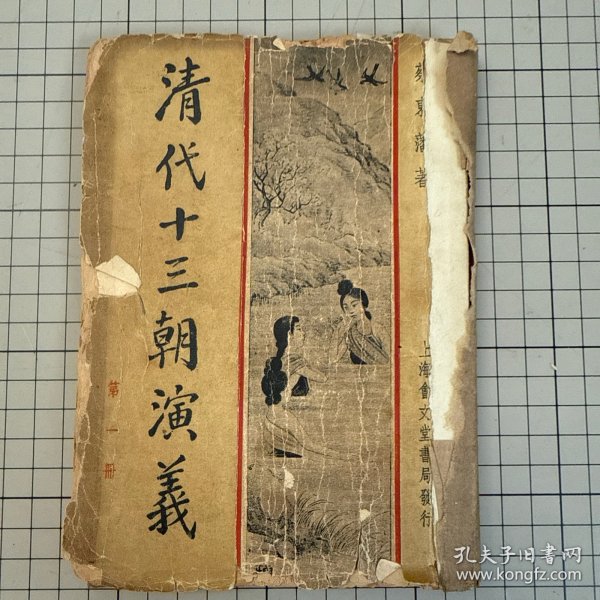 清代十三朝演義
第一冊
蔡東藩著
上海會文堂書局發行
孔夫子旧書网
www.kongfz.com